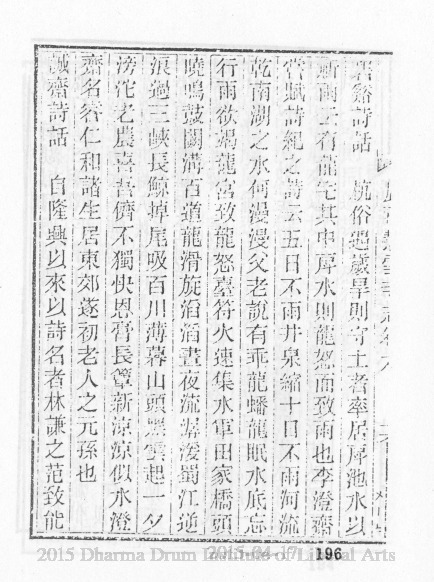 碧谿詩話　杭俗遇歲旱則守土者率居戽池水以
祈雨云有龍宅其中戽水則龍怒而致雨也李澄齋
嘗賦詩紀之詩云五日不雨井泉縮十日不雨河流
乾南湖之水何漫漫父老說有乖龍蟠龍眠水底忘
行雨欲竭龍宮致龍怒臺符火速集水車田家橋頭
曉鳴鼓闢溝百道龍滑旋滔滔晝夜流潺湲蜀江逆
浪過三峽長鯨掉尾吸百川薄暮山頭黑雲起一夕
滂沱老農喜吾儕不獨快恩膏長簟新涼涼似水澄
齋名容仁和諸生居東郊遂初老人之元孫也
誠齋詩話　自隆興以來以詩名者林謙之范致能
2015 Dharma Drum Institute of Liberal Arts
2015-04-17
196